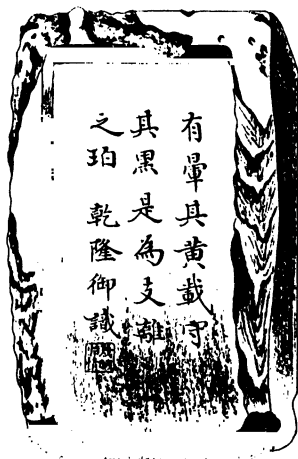 有暈其黄載守
其黑是為支離
之珀 乾隆御識